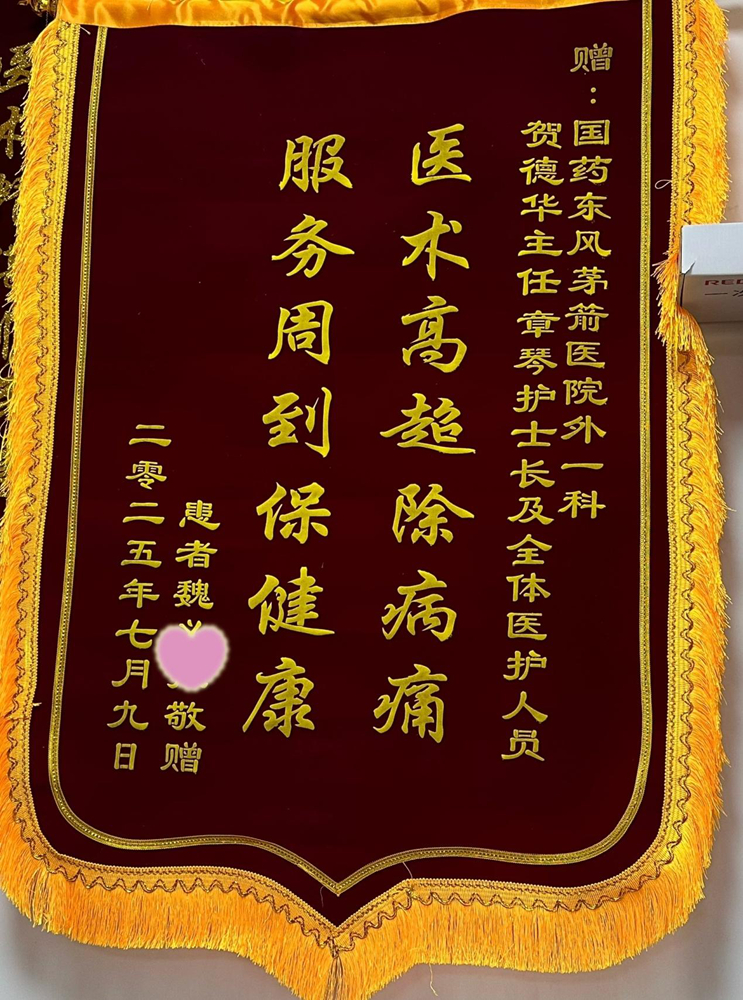 赠：国药东风茅箭医院外一科
贺德华主任章琴护士长及全体医护人员
医术高超除病痛
服务周到保健康
患者魏
敬赠
二零二五年七月九日
RED
一次